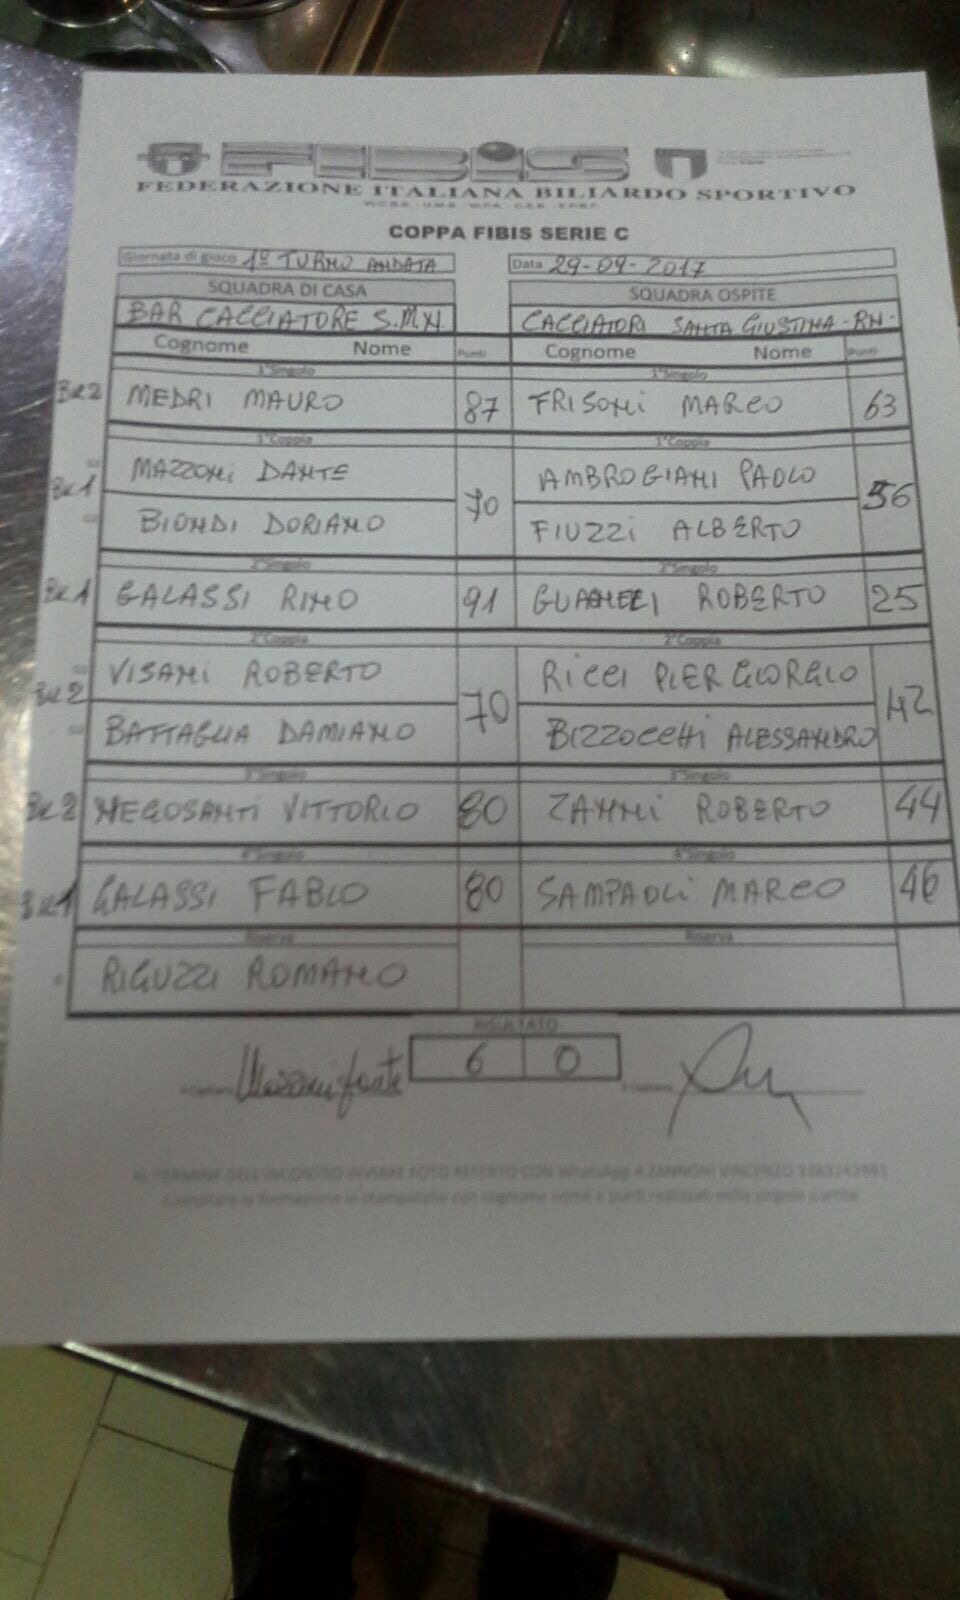 FIBIS
FEDERAZIONE ITALIANA BILIARDO SPORTIVO
COPPA FIBIS SERIE C
Giornata di gioco 1º TURNO ANDATA Data 29-09-2017
SQUADRA DI CASA SQUADRA OSPITE
BAR CACCIATORE S.M.N CACCIATORI SANTA GIUSTINA -RN-
Cognome Nome Punti Cognome Nome Punti
1°Singolo 1°Singolo
Bil 2 MEDRI MAURO 87 FRISONI MARCO 63
1°Coppia 1°Coppia
MAZZONI DANTE AMBROGIANI PAOLO
Bil 1 70 56
BIONDI DORIANO FIUZZI ALBERTO
2°Singolo 2°Singolo
Bil 1 GALASSI RINO 91 ROBERTO 25
2°Coppia 2°Coppia
VISANI ROBERTO RICCI PIER GIORGIO
Bil 2 70 42
BATTAGLIA DAMIANO BIZZOCCHI ALESSANDRO
3°Singolo 3°Singolo
Bil 2 NEGOSANTI VITTORIO 80 ZANNI ROBERTO 44
4°Singolo 4°Singolo
Bil 1 GALASSI FABIO 80 SAMPAOLI MARCO 46
Riserva Riserva
RIGUZZI ROMANO
RISULTATO
6 0
AL TERMINE DELL'INCONTRO INVIARE FOTO REFERTO CON WhatsApp A ZANNONI VINCENZO
Compilare la formazione in stampatello con cognome nome e punti realizzati nelle singole partite